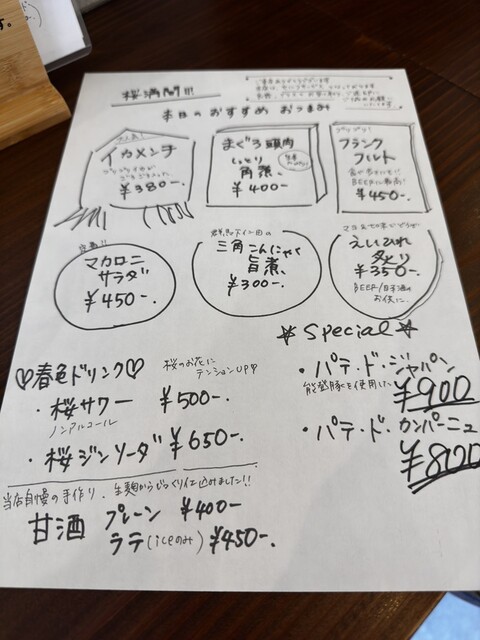 す。
桜満開!!!
本日のおすすめ おつまみ
大人気!
イカメンチ
¥380-.
まぐろ頭肉
しっとり
角煮。
¥400-
プリップリ!
フランク
フルト
BEERに最高!
¥450-.
定番!!
マカロニ
サラダ
¥450-.
三角こんにゃく
旨煮、
¥300-.
えいひれ
炙り
¥350-.
BEER/日本酒の
お供に。
☆Special☆
・パテ・ド・ジャパン
能登豚を使用した
¥900
・パテ・ド・カンパーニュ
¥800
♡春色ドリンク♡
桜のお花に
テンションUP
・桜サワー ¥500-.
ノンアルコール
・桜ジンソーダ ¥650-.
当店自慢の手作り、生麹からじっくり仕込みました!!
甘酒 プレーン ¥400-
ラテ(iceのみ) ¥450-.